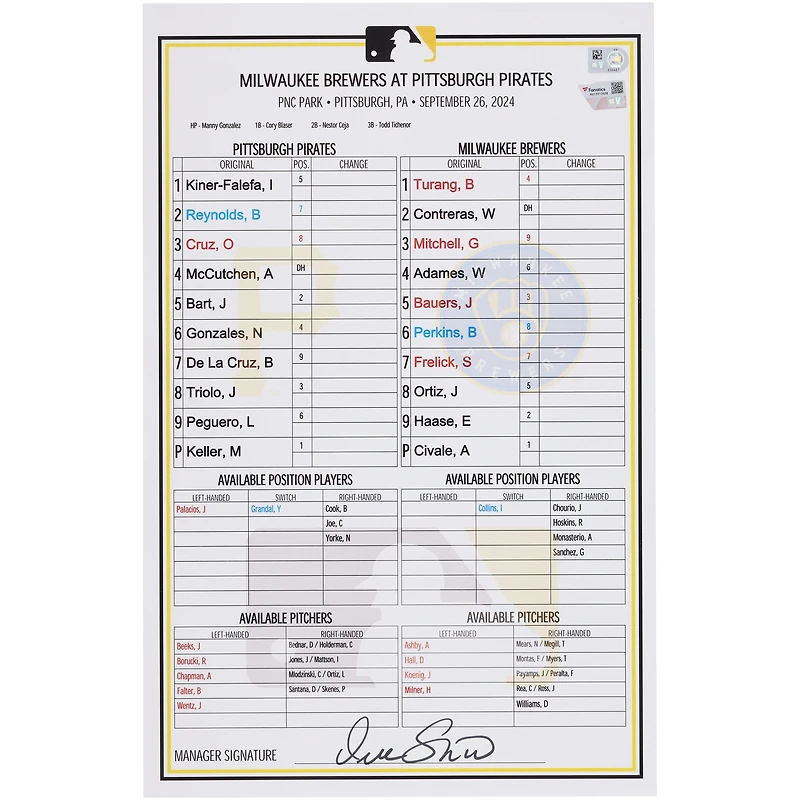 MILWAUKEE BREWERS AT PITTSBURGH PIRATES
PNC PARK • PITTSBURGH, PA • SEPTEMBER 26, 2024
HP - Manny Gonzalez 1B - Cory Blaser 2B - Nestor Ceja 3B - Todd Tichenor
PITTSBURGH PIRATES
ORIGINAL POS. CHANGE
1 Kiner-Falefa, I 5
2 Reynolds, B 7
3 Cruz, O 8
4 McCutchen, A DH
5 Bart, J 2
6 Gonzales, N 4
7 De La Cruz, B 9
8 Triolo, J 3
9 Peguero, L 6
P Keller, M 1
MILWAUKEE BREWERS
ORIGINAL POS. CHANGE
1 Turang, B 4
2 Contreras, W DH
3 Mitchell, G 9
4 Adames, W 6
5 Bauers, J 3
6 Perkins, B 8
7 Frelick, S 7
8 Ortiz, J 5
9 Haase, E 2
P Civale, A 1
AVAILABLE POSITION PLAYERS
LEFT-HANDED SWITCH RIGHT-HANDED
Palacios, J Grandal, Y Cook, B
Joe, C
Yorke, N
AVAILABLE POSITION PLAYERS
LEFT-HANDED SWITCH RIGHT-HANDED
Collins, I Chourio, J
Hoskins, R
Monasterio, A
Sanchez, G
AVAILABLE PITCHERS
LEFT-HANDED RIGHT-HANDED
Beeks, J Bednar, D / Holderman, C
Borucki, R Jones, J / Mattson, I
Chapman, A Mlodzinski, C / Ortiz, L
Falter, B Santana, D / Skenes, P
Wentz, J
AVAILABLE PITCHERS
LEFT-HANDED RIGHT-HANDED
Ashby, A Mears, N / Megill, T
Hall, D Montas, F / Myers, T
Koenig, J Payamps, J / Peralta, F
Milner, H Rea, C / Ross, J
Williams, D
MANAGER SIGNATURE
MILWAUKEE
BREWERS
Fanatics